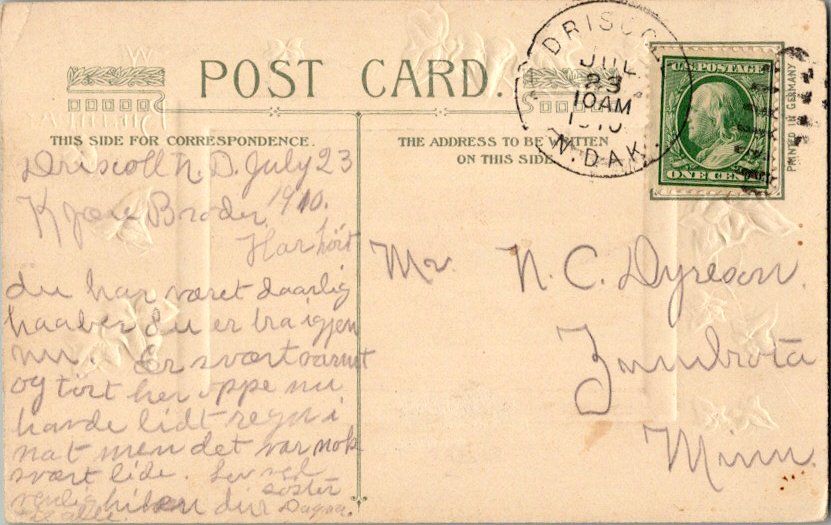 POST CARD.
THIS SIDE FOR CORRESPONDENCE.
THE ADDRESS TO BE WRITTEN
ON THIS SIDE
DRISCO
JUL
23
10AM
1910
N. DAK.
U.S. POSTAGE
ONE CENT
PRINTED IN GERMANY
Driscoll N. D. July 23
1910.
Kjære Broder.
Har hört
du har været daarlig
haaber du er bra igjen
nu. Er svært varmt
og tört her oppe nu
havde lidt regn i
nat men det var nok
svært lide. Lev vel
venlig hilsen din söster
Dagna.
Mr. N. C. Dyreson.
Zumbrota
Minn.